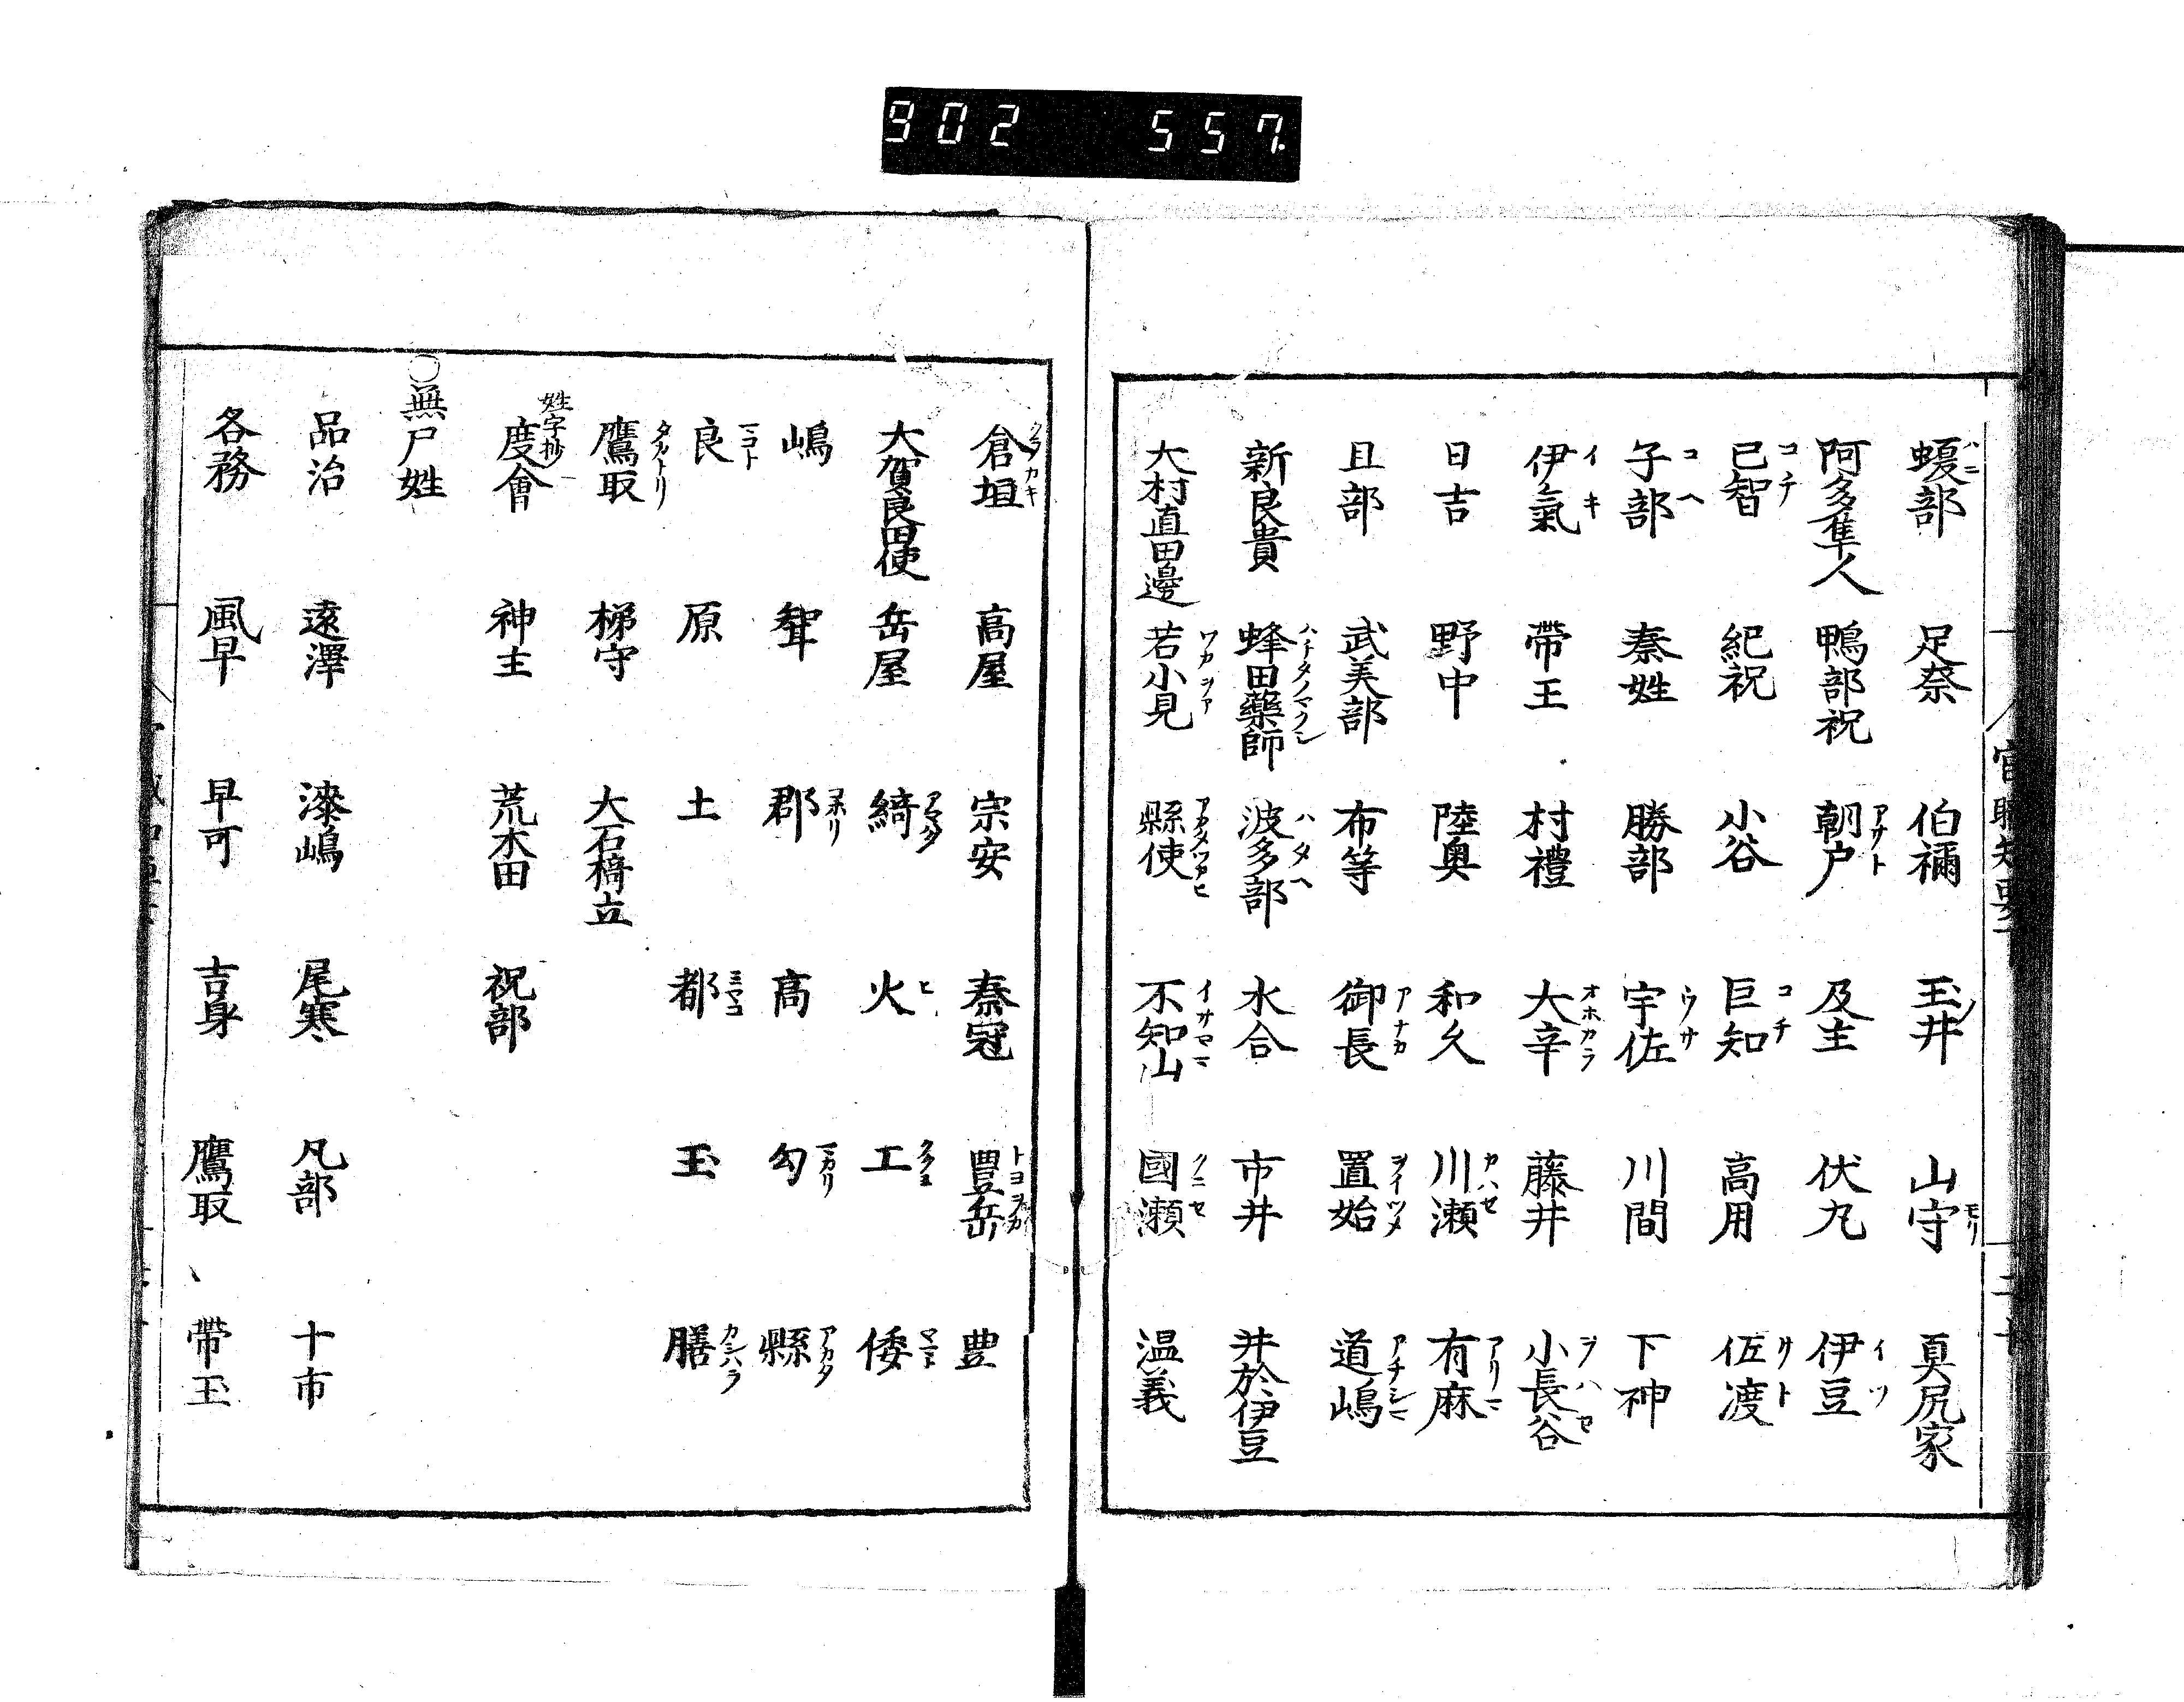 902 557
蝮部 足奈 伯禰 玉井 山守 真尻家
阿多隼人 鴨部祝 朝戸 及主 伏丸 伊豆
己智 紀祝 小谷 巨知 高用 佐渡
子部 秦姓 勝部 宇佐 川間 下神
伊氣 帶王 村禮 大辛 藤井 小長谷
日吉 野中 陸奥 和久 川瀬 有麻
且部 武美部 布等 御長 置始 道嶋
新良貴 蜂田藥師 波多部 水合 市井 井於伊豆
大村直田邊 若小見 縣使 不知山 國瀬 温義
倉垣 高屋 宗安 秦冠 豊岳 豊
大賀良田使 岳屋 綺 火 工 倭
嶋 郡 髙 勾 縣
良 原 土 都 玉 膳
鷹取 梯守 大石橋立
姓字抄
度會 神主 荒木田 祝部
○無尸姓
品治 遠澤 漆嶋 尾寒 凡部 十市
各務 風早 早可 吉身 鷹取 帶玉